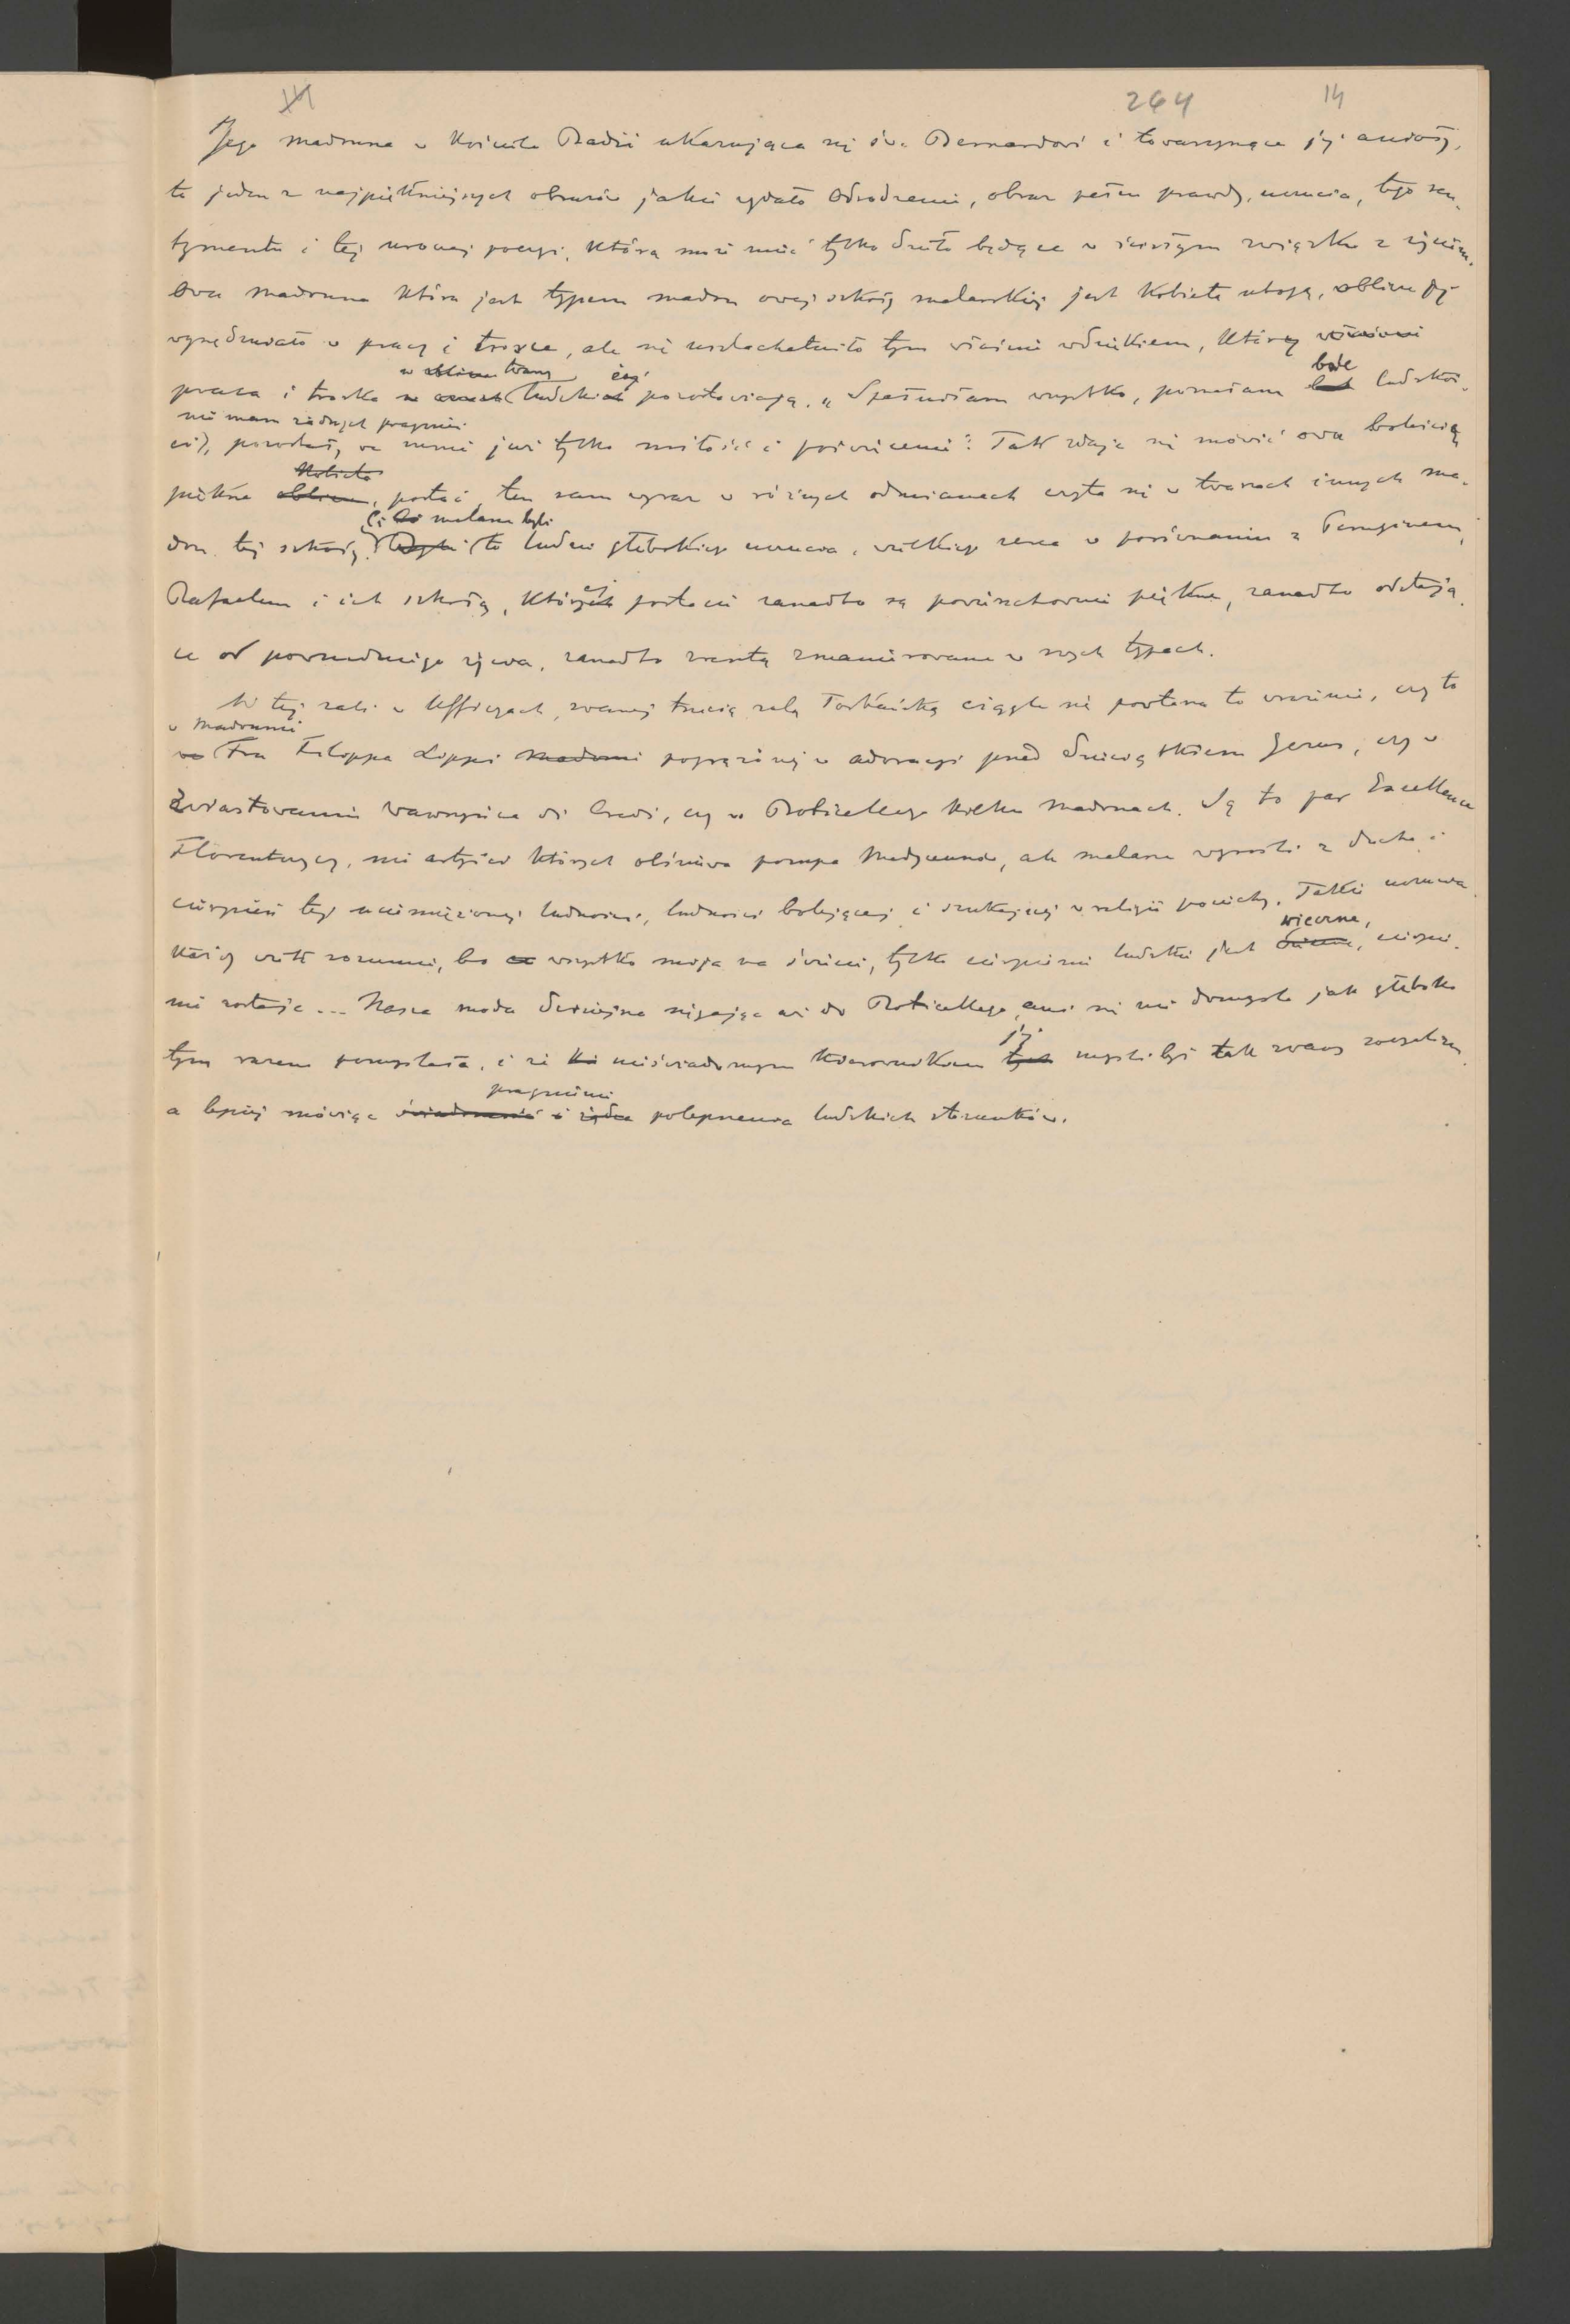 264 14
Jego madonna w kościele Badii ukazująca się św. Bernardowi i towarzyszące jej anioły,
to jeden z najpiękniejszych obrazów jakie wydało Odrodzenie, obraz pełen prawdy, uczucia, tego sen-
tymentu i tej uroczej poezyi, którą może mieć tylko dzieło będące w ścisłym związku z życiem.
Owa madonna która jest typem madon owej szkoły malarskiej jest kobietą ubogą, oblicze jej
wynędzniało w pracy i trosce, ale się uszlachetniło tym właśnie wdziękiem, który właśnie
w obliczu twarzy bóle
praca i troska w ludzkiej pozostawiają. „Spełniałam wszystko, poznałam ludzko-
nie mam żadnych pragnień
ści, pozostały we mnie już tylko miłość i poświęcenie". Tak zdaje się mówić owa boleścią
kobieta
piękna oblicze, postać, ten sam wyraz w różnych odmianach czyta się w twarzach innych ma-
Ci malarze byli
don tej szkoły. to ludzie głębokiego uczucia, wielkiego serca w porównaniu z Peruginem,
Rafaelem i ich szkołą, których postacie zanadto są powierzchownie piękne, zanadto odstają-
ce od powszedniego życia, zanadto zresztą zmanierowane w swych typach.
W tej sali w Ufficyach, zwanej trzecią salą Toskańską ciągle się powtarza to wrażenie, czy to
w madonnie
we Fra Filippa Lippi madonnie pogrążonej w adoracyi przed Dzieciątkiem Jezus, czy w
Zwiastowaniu Wawrzyńca di Credi, czy w Botticellego kilku madonnach. Są to par Excellence
Florentczycy, nie artyści których olśniewa pompa Medyceuszów, ale malarze wyrośli z ducha i
cierpień tej uciemiężonej ludności, ludności bolejącej i szukającej w religii pociechy. Takie uczucia
wieczne,
każdy wiek rozumie, bo wszystko mija na świecie, tylko cierpienie ludzkie jest cierpie-
nie zostaje... Nasza moda dzisiejsza sięgając aż do Botticellego, ani się nie domyśla jak głęboko
jej
tym razem pomyślała, i że nieświadomym kierownikiem myśli był tak zwany socyalizm
pragnienie
a lepiej mówiąc świadomość i żądza polepszenia ludzkich stosunków.